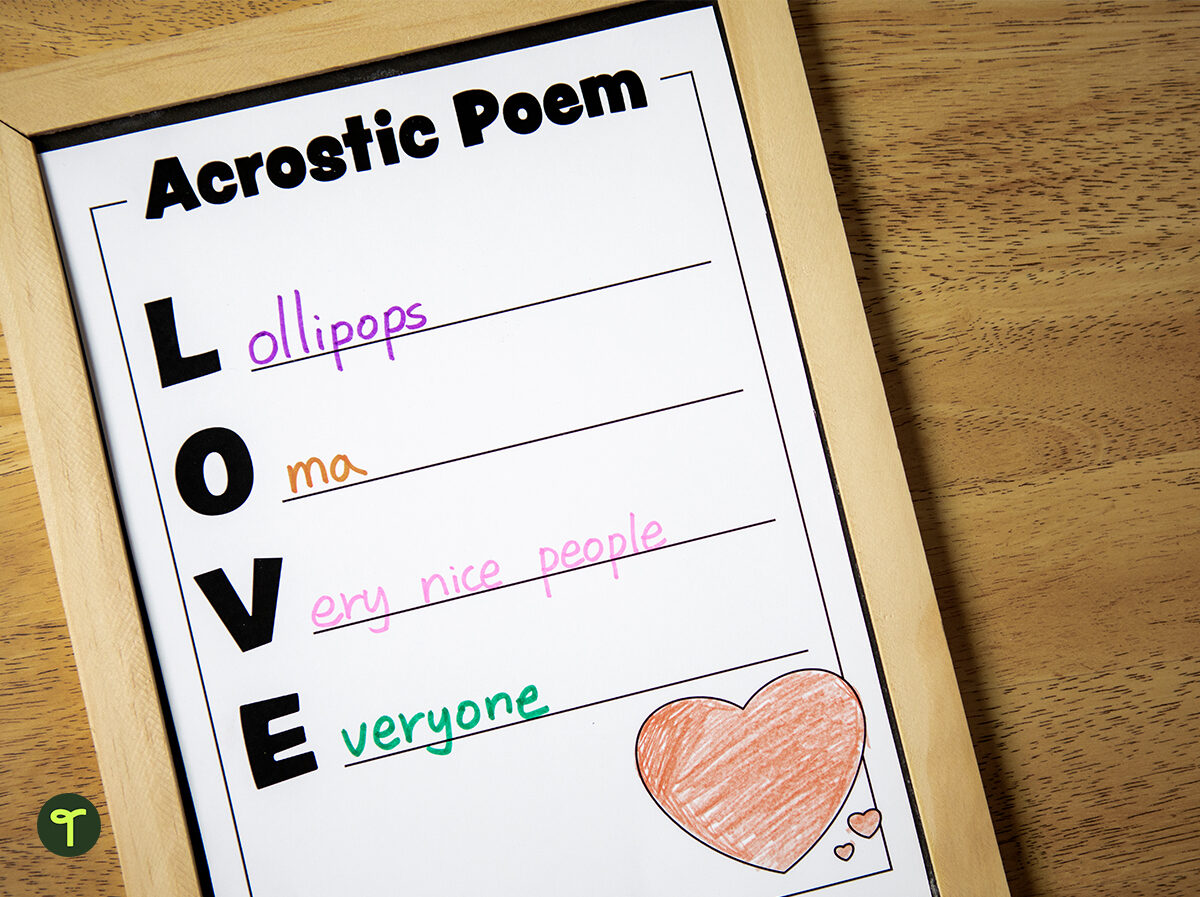 Acrostic Poem
Lollipops
Oma
Very nice people
Everyone